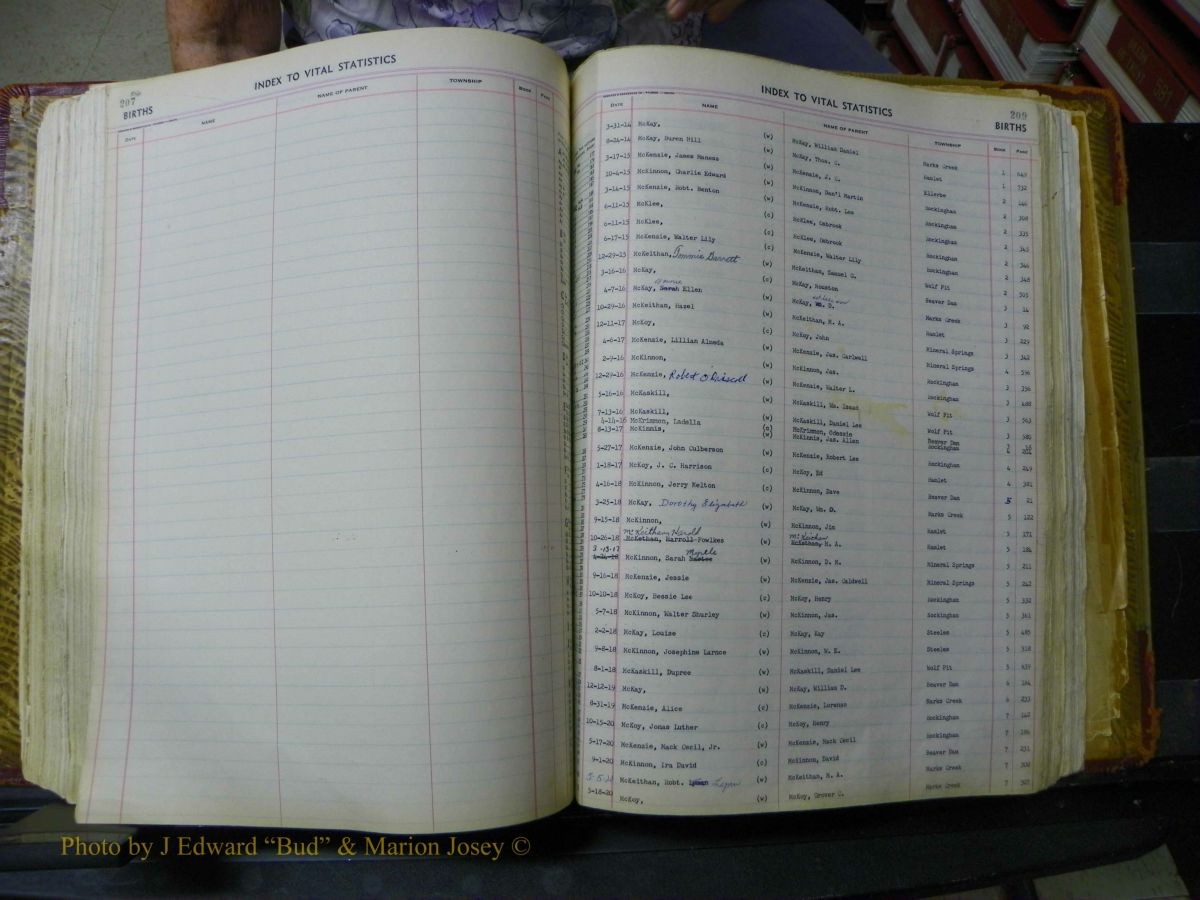 207
BIRTHS
INDEX TO VITAL STATISTICS
DATE NAME NAME OF PARENT TOWNSHIP BOOK PAGE
INDEX TO VITAL STATISTICS
209
BIRTHS
DATE NAME NAME OF PARENT TOWNSHIP BOOK PAGE
3-31-14 McKay, (w) McKay, William Daniel Marks Creek 1 649
8-24-14 McKay, Duren Hill (w) McKay, Thos. C. Hamlet 1 732
3-17-15 McKenzie, James Maness (w) McKenzie, J. C. Ellerbe 2 146
10-4-15 McKinnon, Charlie Edward (w) McKinnon, Dan'l Martin Rockingham 2 308
3-14-15 McKenzie, Robt. Benton (w) McKenzie, Robt. Lee Rockingham 2 335
6-11-15 McKlee, (c) McKlee, Osbrook Rockingham 2 345
6-11-15 McKlee, (c) McKlee, Osbrook Rockingham 2 346
6-17-15 McKenzie, Walter Lily (w) McKenzie, Walter Lily Rockingham 2 348
12-29-15 McKeithan, Tommie Barrett (w) McKeithan, Samuel G. Wolf Pit 2 505
3-16-16 McKay, (c) McKay, Houston Beaver Dam 3 14
4-7-16 McKay, Sarah Ellen (w) McKay, Wm. D. Marks Creek 3 92
10-29-16 McKeithan, Hazel (w) McKeithan, H. A. Hamlet 3 229
12-11-17 McKoy, (c) McKoy, John Mineral Springs 3 342
4-6-17 McKenzie, Lillian Almeda (w) McKenzie, Jas. Carlwell Mineral Springs 4 596
2-9-16 McKinnon, (w) McKinnon, Jas. Rockingham 3 356
12-29-16 McKenzie, Robert O'Driscoll (w) McKenzie, Walter L. Rockingham 3 488
5-16-16 McKaskill, (w) McKaskill, Wm. Isaac Wolf Pit 3 563
7-13-16 McKaskill, (w) McKaskill, Daniel Lee Wolf Pit 3 580
4-14-16 McKrimmon, Ladella (c) McKrimmon, Odessie Beaver Dam 3 56
8-13-17 McKinnis, (w) McKinnis, Jas. Allen Rockingham 4 202
5-27-17 McKenzie, John Culberson (w) McKenzie, Robert Lee Rockingham 4 249
1-18-17 McKoy, J. C. Harrison (c) McKoy, Ed Hamlet 4 381
4-16-18 McKinnon, Jerry Kelton (c) McKinnon, Dave Beaver Dam 5 21
3-25-18 McKay, Dorothy Elizabeth (w) McKay, Wm. D. Marks Creek 5 122
9-15-18 McKinnon, (w) McKinnon, Jim Hamlet 5 171
McKeithan Harold McKeithan
10-26-18 McKethan, Harroll Fowlkes (w) McKethan, H. A. Hamlet 5 184
3-13-17 Myrtle
McKinnon, Sarah (w) McKinnon, D. M. Mineral Springs 5 211
9-16-18 McKenzie, Jessie (w) McKenzie, Jas. Caldwell Mineral Springs 5 242
10-10-18 McKoy, Bessie Lee (c) McKoy, Henry Rockingham 5 332
5-7-18 McKinnon, Walter Shurley (w) McKinnon, Jas. Rockingham 5 341
2-2-18 McKay, Louise (c) McKay, Kay Steeles 5 485
9-8-18 McKinnon, Josephine Larnce (w) McKinnon, W. E. Steeles 5 518
8-1-18 McKaskill, Dupree (w) McKaskill, Daniel Lee Wolf Pit 5 639
12-12-19 McKay, (w) McKay, William D. Beaver Dam 6 184
8-31-19 McKenzie, Alice (c) McKenzie, Lorenzo Marks Creek 6 233
10-15-20 McKoy, Jonas Luther (c) McKoy, Henry Rockingham 7 140
5-17-20 McKenzie, Mack Cecil, Jr. (w) McKenzie, Mack Cecil Rockingham 7 184
9-1-20 McKinnon, Ira David (c) McKinnon, David Beaver Dam 7 231
McKeithan, Robt. Lynn (w) McKeithan, H. A. Marks Creek 7 302
3-18-20 McKoy, (w) McKoy, Grover C. Marks Creek 7 307
Photo by J Edward “Bud” & Marion Josey ©